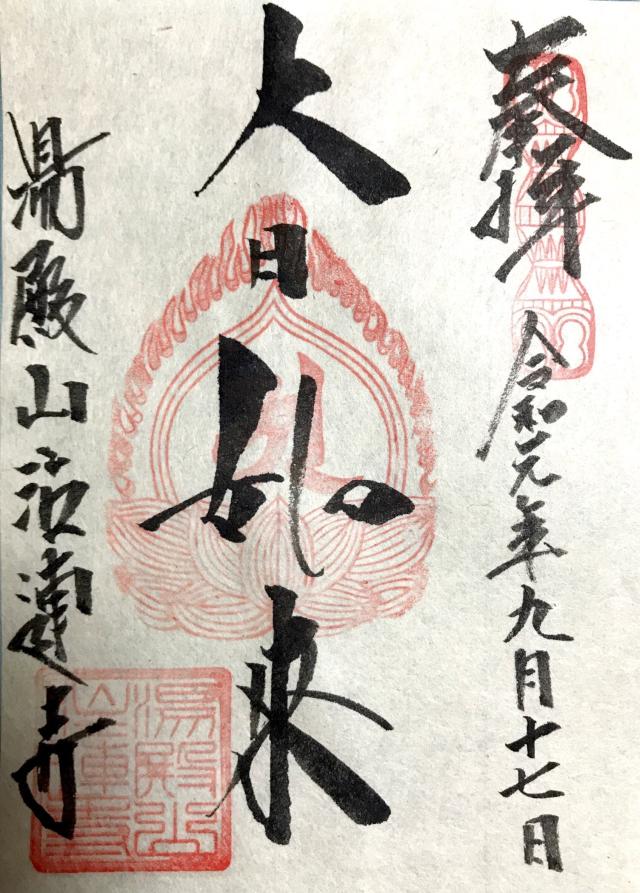 奉拝
令和元年九月十七日
大日如来
湯殿山注連寺
湯殿山
注連寺